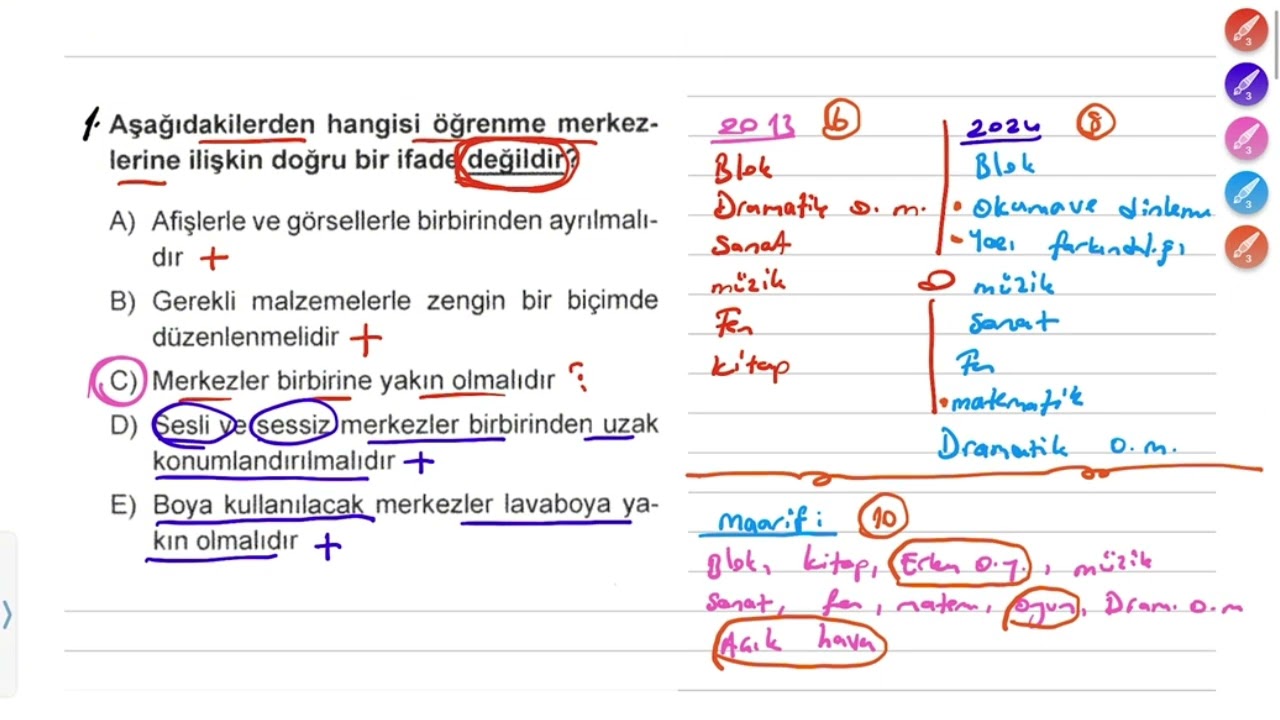 1. Aşağıdakilerden hangisi öğrenme merkez-
lerine ilişkin doğru bir ifade değildir?
A) Afişlerle ve görsellerle birbirinden ayrılmalı-
dır +
B) Gerekli malzemelerle zengin bir biçimde
düzenlenmelidir +
C) Merkezler birbirine yakın olmalıdır ?
D) Sesli ve sessiz merkezler birbirinden uzak
konumlandırılmalıdır +
E) Boya kullanılacak merkezler lavaboya ya-
kın olmalıdır +
2013 6
Blok
Dramatik o. m.
Sanat
müzik
Fen
kitap
2024 8
Blok
• Okuma ve dinleme
• Yazı farkındalığı
müzik
Sanat
Fen
• matematik
Dramatik o. m.
Maarif: 10
Blok, kitap, Erken o.y., müzik
Sanat, fen, matem, oyun, Dram. o. m
Açık hava
3
3
3
3
3